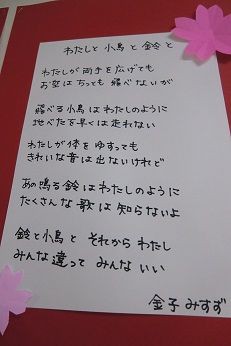 わたしと小鳥と鈴と
わたしが両手を広げても
お空はちっとも飛べないが
飛べる小鳥はわたしのように
地べたを早くは走れない
わたしが体をゆすっても
きれいな音は出ないけれど
あの鳴る鈴はわたしのように
たくさんな歌は知らないよ
鈴と小鳥と それからわたし
みんな違って みんないい
金子 みすず